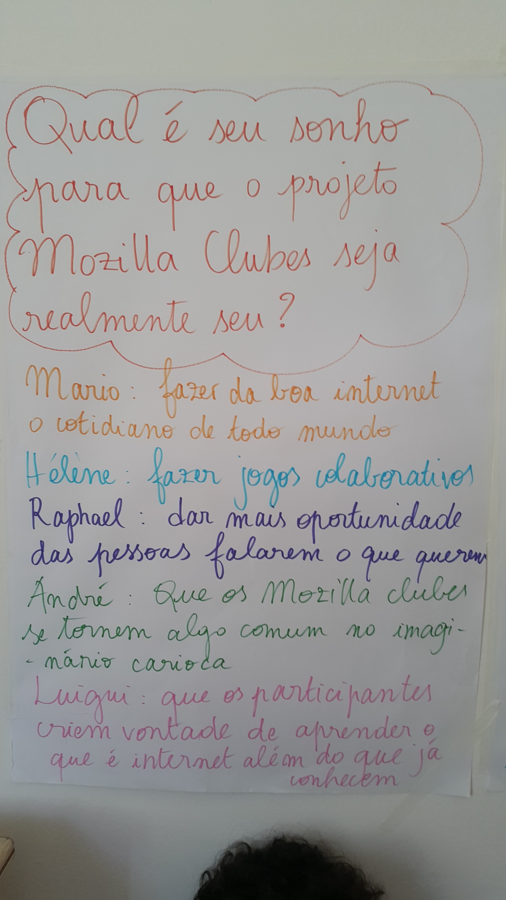 Qual é seu sonho
para que o projeto
Mozilla Clubes seja
realmente seu?
Mario: fazer da boa internet
o cotidiano de todo mundo
Hélène: fazer jogos colaborativos
Raphael: dar mais oportunidade
das pessoas falarem o que querem
André: Que os Mozilla clubes
se tornem algo comum no imagi-
-nário carioca
Luigui: que os participantes
criem vontade de aprender o
que é internet além do que já
conhecem